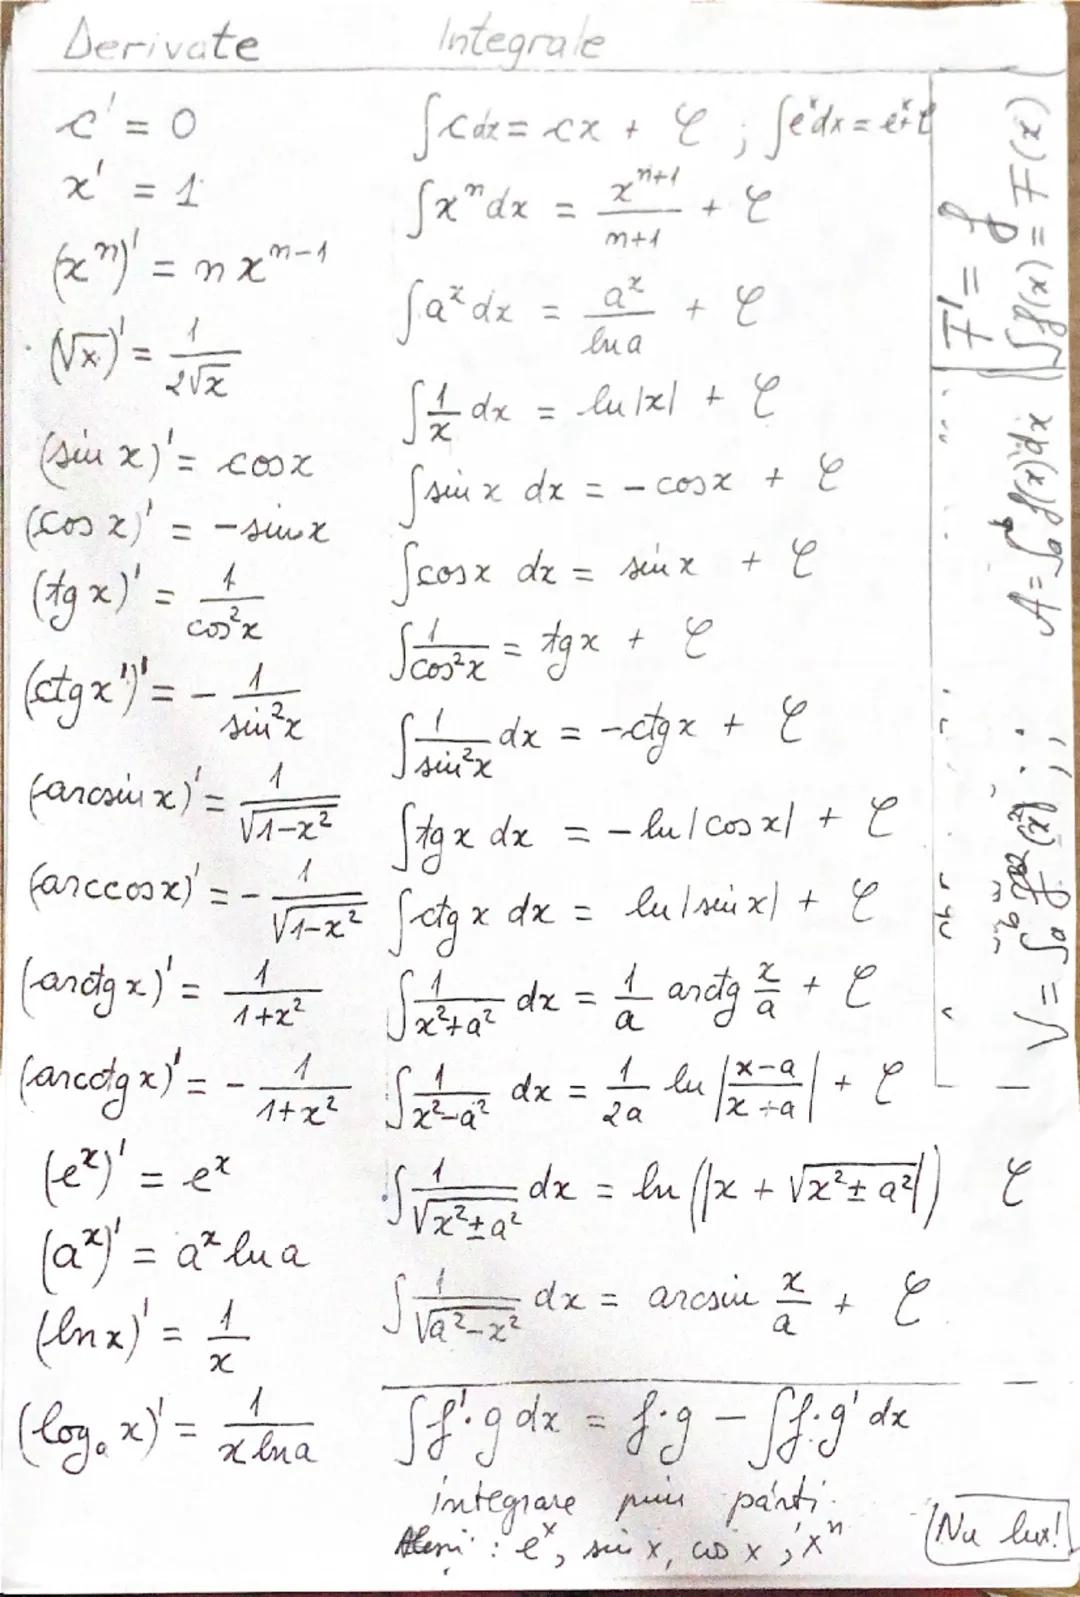 Derivate
c' = 0
x' = 1
(xⁿ)' = n xⁿ⁻¹
(√x)' = 1/(2√x)
(sin x)' = cos x
(cos x)' = -sin x
(tg x)' = 1/cos²x
(ctg x')' = - 1/sin²x
(arcsin x)' = 1/√(1-x²)
(arccos x)' = - 1/√(1-x²)
(arctg x)' = 1/(1+x²)
(arcctg x)' = - 1/(1+x²)
(eˣ)' = eˣ
(aˣ)' = aˣ ln a
(ln x)' = 1/x
(logₐ x)' = 1/(x ln a)
Integrale
∫c dx = cx + C ; ∫eˣdx = eˣ+C
∫xⁿ dx = xⁿ⁺¹/(n+1) + C
∫aˣ dx = aˣ/ln a + C
∫1/x dx = ln|x| + C
∫sin x dx = - cos x + C
∫cos x dx = sin x + C
∫1/cos²x = tg x + C
∫1/sin²x dx = -ctg x + C
∫tg x dx = - ln|cos x| + C
∫ctg x dx = ln|sin x| + C
∫1/(x²+a²) dx = 1/a arctg x/a + C
∫1/(x²-a²) dx = 1/2a ln |(x-a)/(x+a)| + C
∫1/√(x²±a²) dx = ln (|x + √(x²±a²)|) C
∫1/√(a²-x²) dx = arcsin x/a + C
∫f'·g dx = f·g - ∫f·g' dx
integrare prin părți
: eˣ, sin x, cos x, xⁿ
Nu lux!
F' = f
∫f(x) = F(x)
A = ∫ₐᵇ f(x)dx
V = ∫ₐᵇ f²(x)